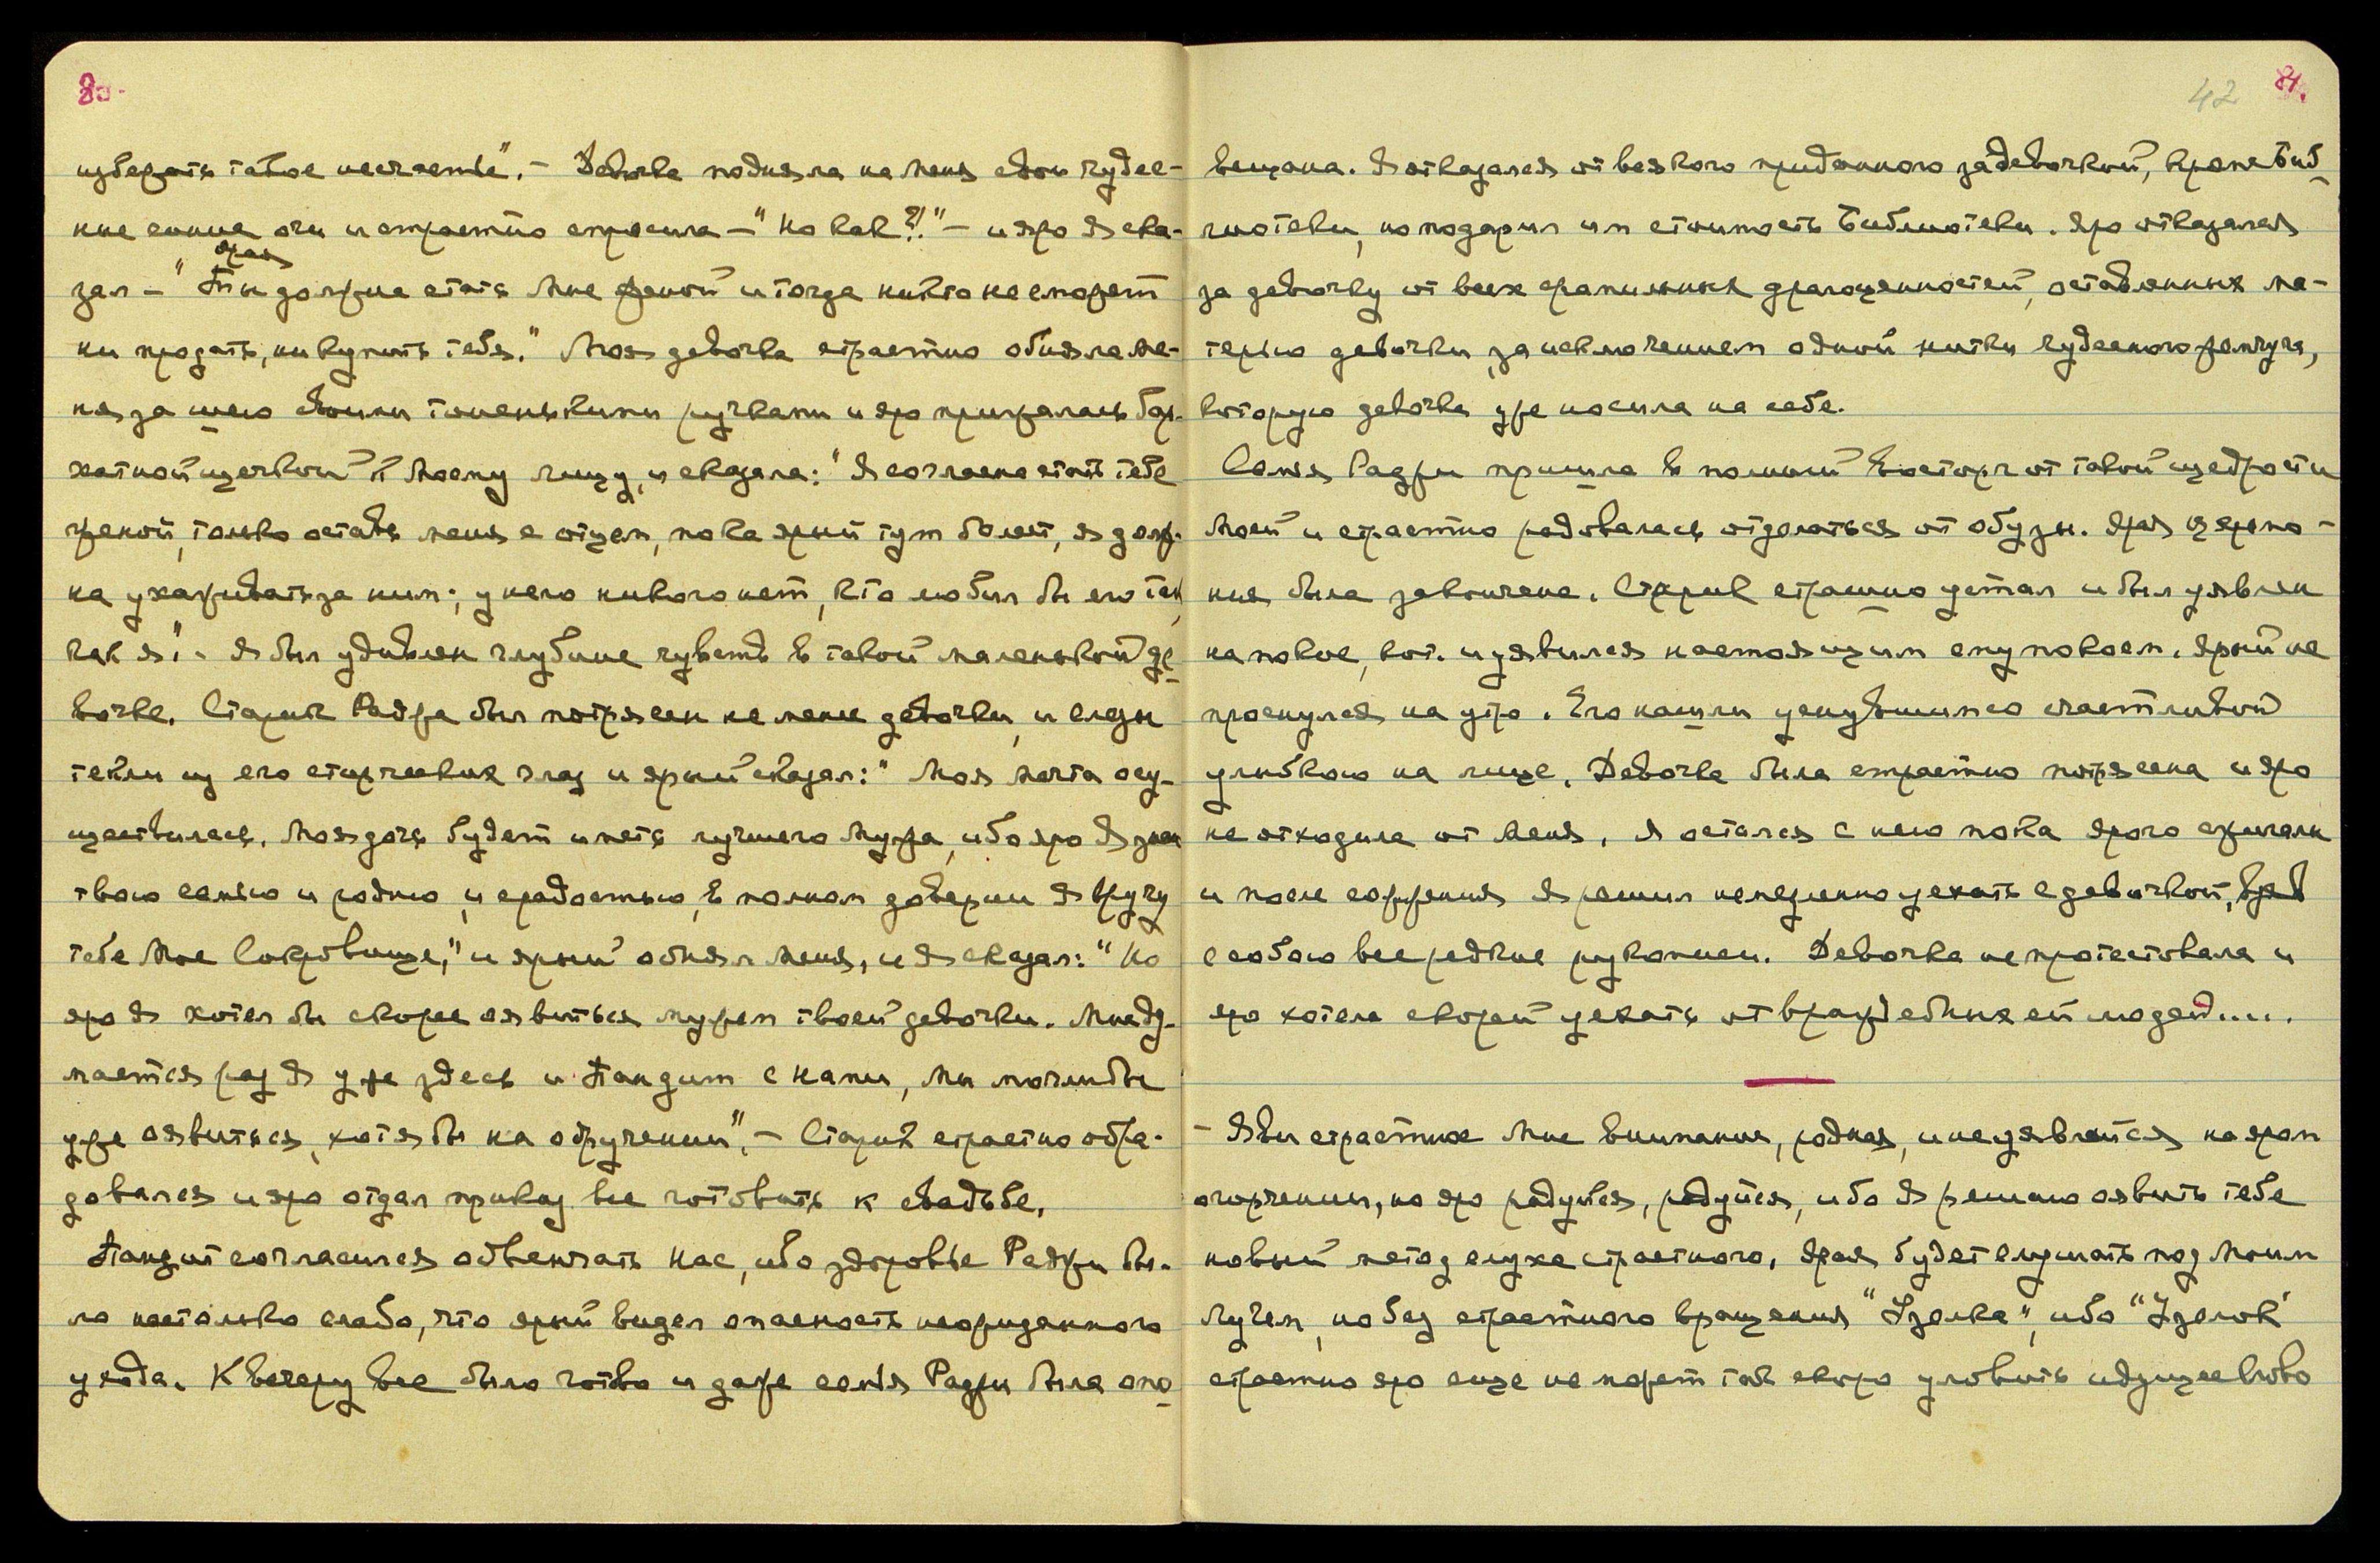 80.
избежать такое несчастье". – Девочка подняла на меня свои чудес-
ные синие очи и страстно спросила – "Но как?!" – и яро Я ска-
зал – "Ты ярая должна стать Мне женой и тогда никто не сможет
ни продать, ни купить тебя." Моя девочка страстно обняла ме-
ня за шею своими тоненькими ручками и яро прижалась бар-
хатной щечкой к Моему лицу, и сказала: "Я согласна стать тебе
женой, только оставь меня с отцом, пока ярый тут болеет, я долж-
на ухаживать за ним; у него никого нет, кто любил бы его так,
как я". – Я был удивлен глубине чувств в такой маленькой де-
вочке. Старик Раджа был потрясен не менее девочки, и слезы
текли из его старческих глаз и ярый сказал: "Моя мечта осу-
ществилась. Моя дочь будет иметь лучшего Мужа, ибо яро Я знаю
твою семью и родню, и с радостью, в полном доверии Я вручу
тебе Мое Сокровище," и ярый обнял Меня, и Я сказал: "Но
яро Я хотел бы скорее явиться мужем твоей девочки. Мне ду-
мается раз Я уже здесь и Пандит с нами, мы могли бы
уже явиться, хотя бы на обручении". – Старик страстно обра-
довался и яро отдал приказ все готовить к свадьбе.
Пандит согласился обвенчать нас, ибо здоровье Раджи бы-
ло настолько слабо, что ярый видел опасность неожиданного
ухода. К вечеру все было готово и даже семья Раджи была опо-
42 81.
вещена. Я отказался от всякого приданного за девочкой, кроме Биб-
лиотеки, но подарил им стоимость Библиотеки. Яро отказался
за девочку от всех фамильных драгоценностей, оставленных ма-
терью девочки, за исключением одной нитки чудесного жемчуга,
которую девочка уже носила на себе.
Семья Раджи пришла в полный восторг от такой щедрости
Моей и страстно радовалась отделаться от обузы. Ярая церемо-
ния была закончена. Старик страшно устал и был уявлен
на покое, кот. и уявился настоящим ему покоем. Ярый не
проснулся на утро. Его нашли уснувшим со счастливой
улыбкою на лице. Девочка была страстно потрясена и яро
не отходила от Меня. Я остался с нею пока ярого сжигали
и после сожжения Я решил немедленно уехать с девочкой, взяв
с собою все редкие рукописи. Девочка не протестовала и
яро хотела скорей уехать от враждебных ей людей.....
– Яви страстное Мне внимание, родная, и не уявляйся на яром
огорчении, но яро радуйся, радуйся, ибо Я решаю явить тебе
новый метод слуха страстного. Ярая будет слушать под Моим
Лучем, но без страстного вращения "Узелка", ибо "Узелок"
страстно яро еще не может так скоро уловить идущее слово